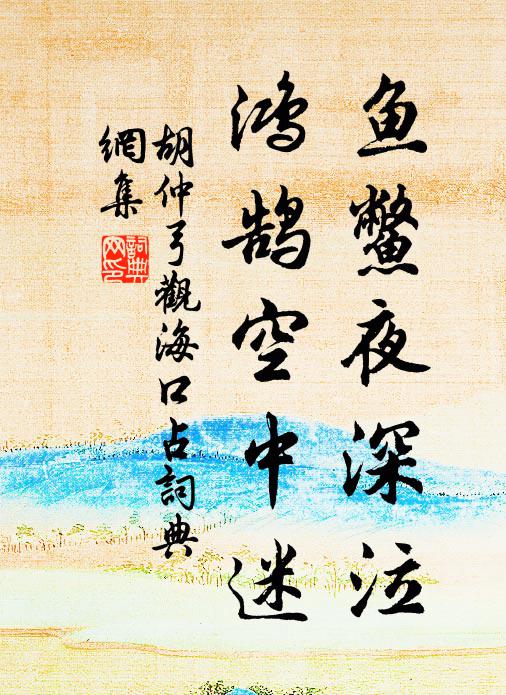 鱼鳖夜深泣
鸿鹄空中迷
胡仲弓觀海口占詞典
網集
詞典
网印